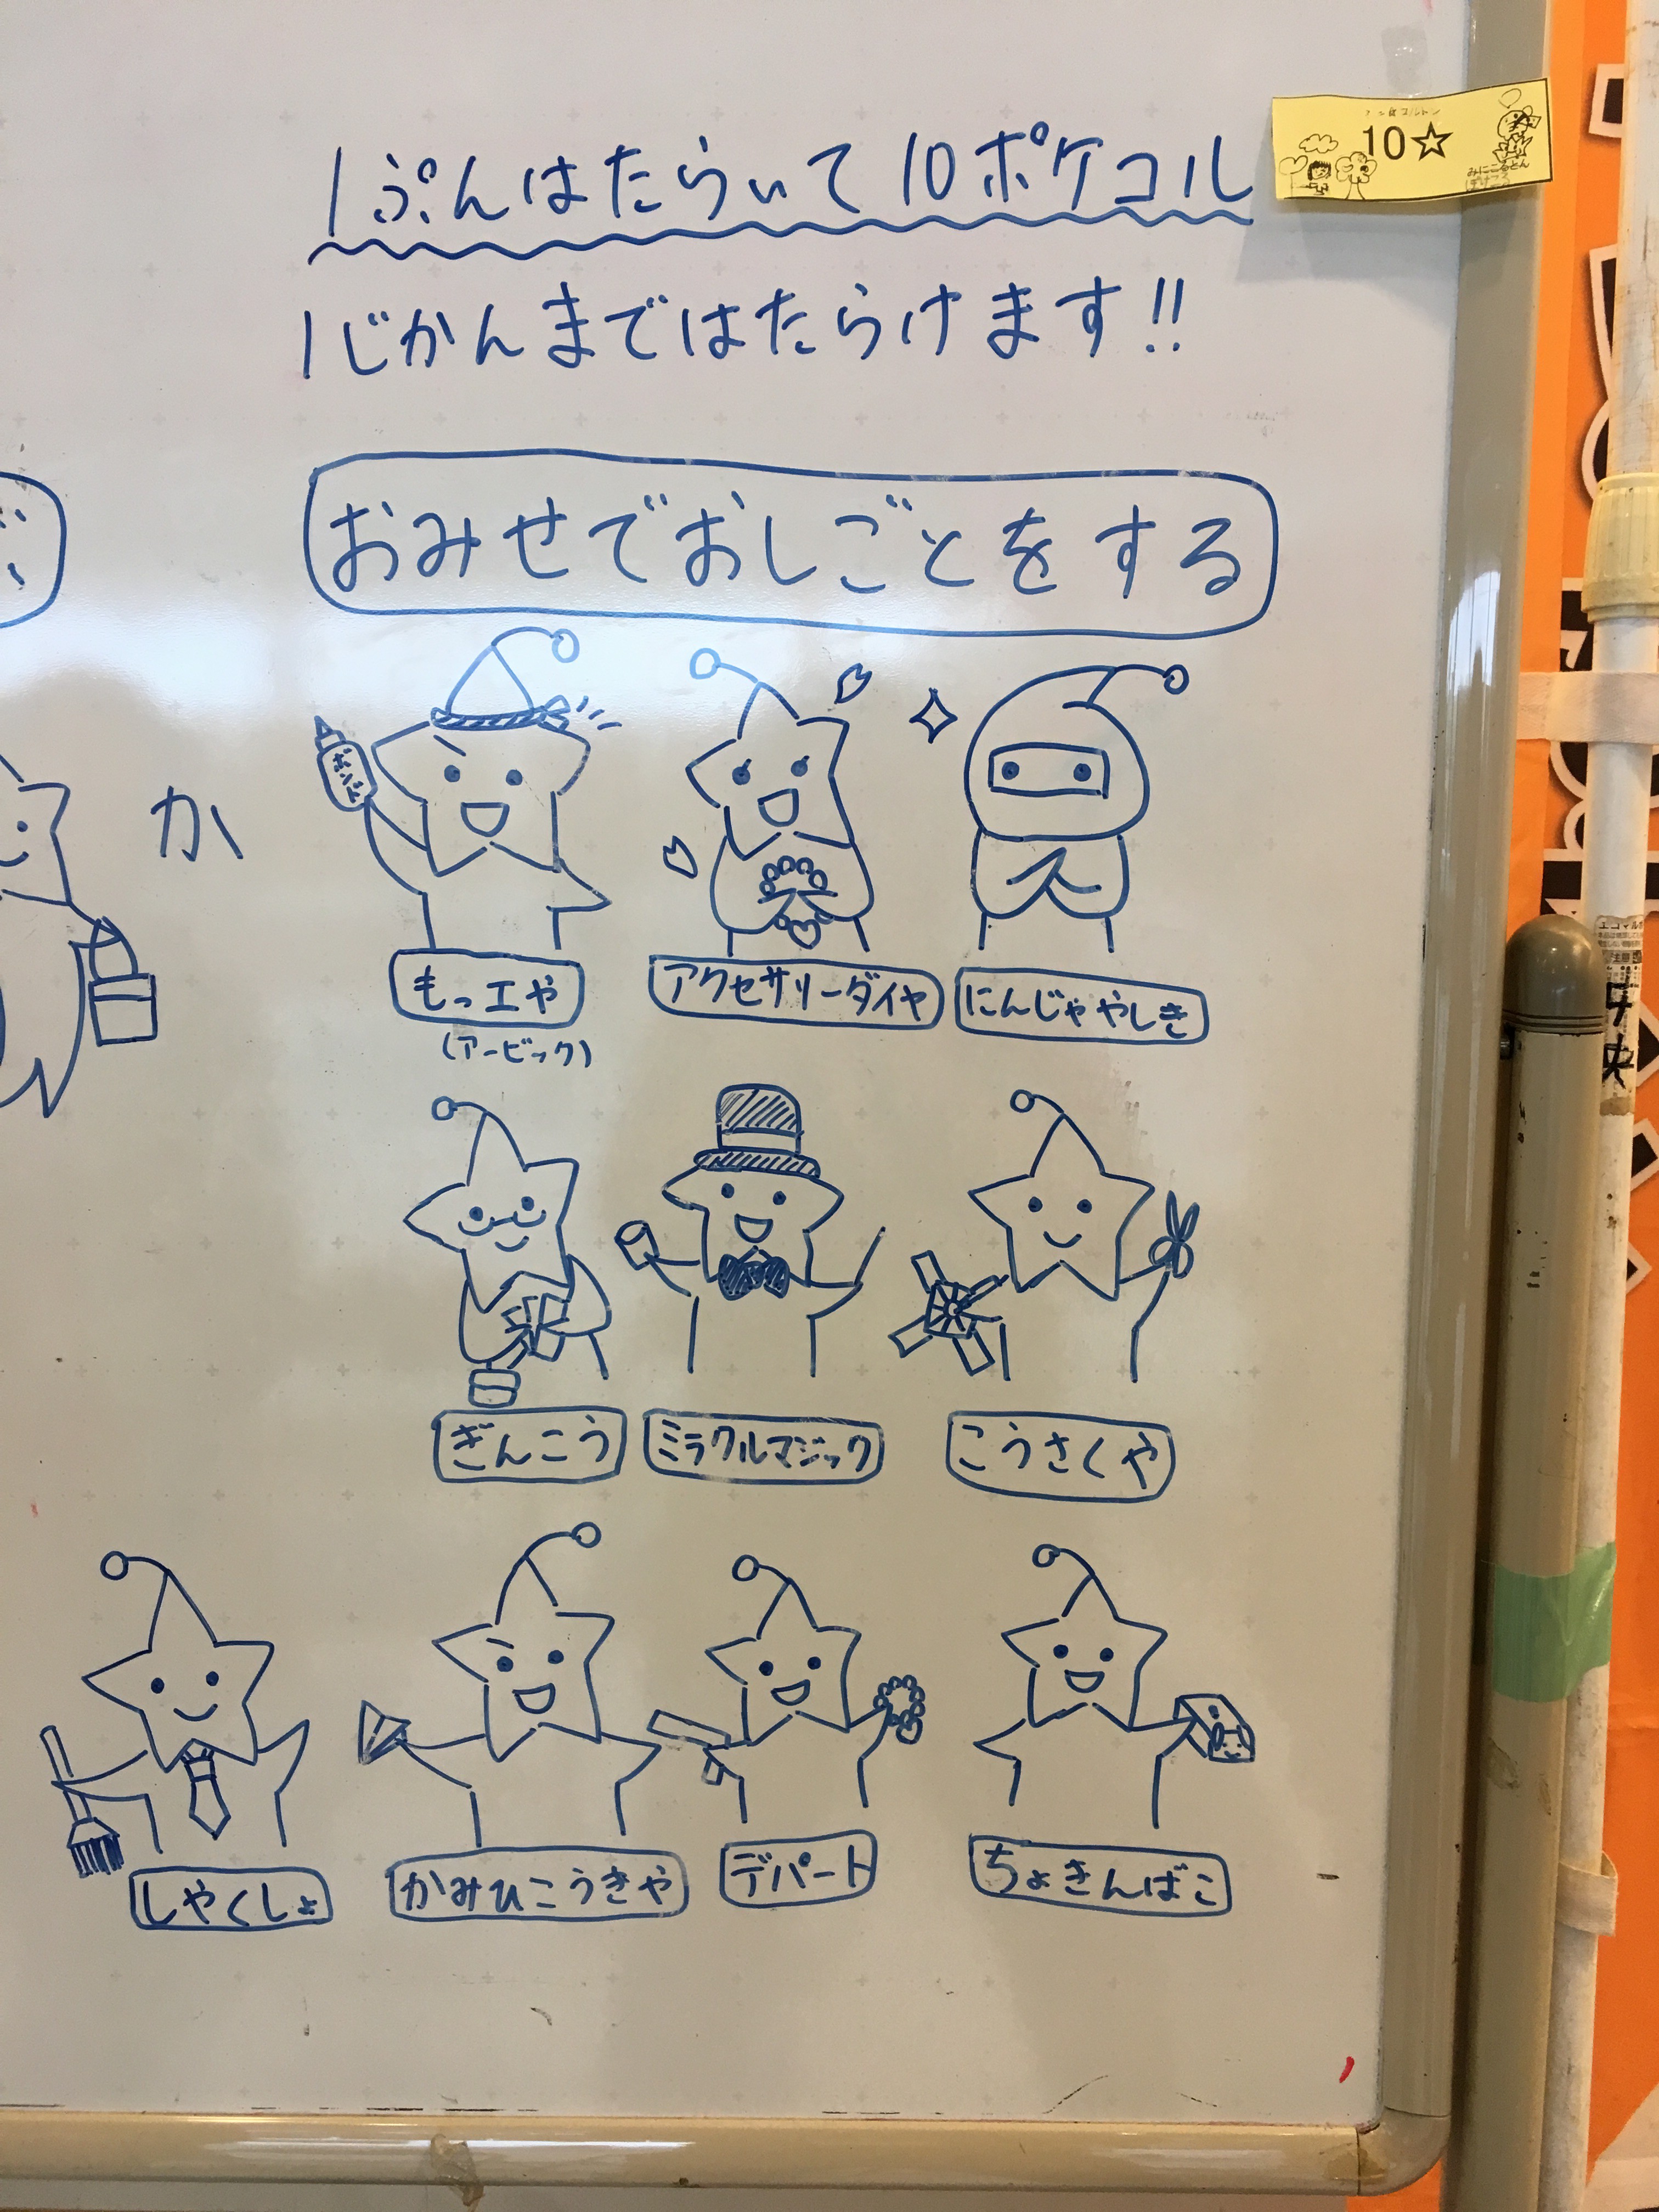 1ぷんはたらいて10ポケコル
10☆
1じかんまではたらけます!!
おみせでおしごとをする
か
ボンド
もっエや
アクセサリーダイヤ
にんじゃやしき
(アービック)
ぎんこう
ミラクルマジック
こうさくや
しやくしょ
かみひこうきや
デパート
ちょきんばこ
中央